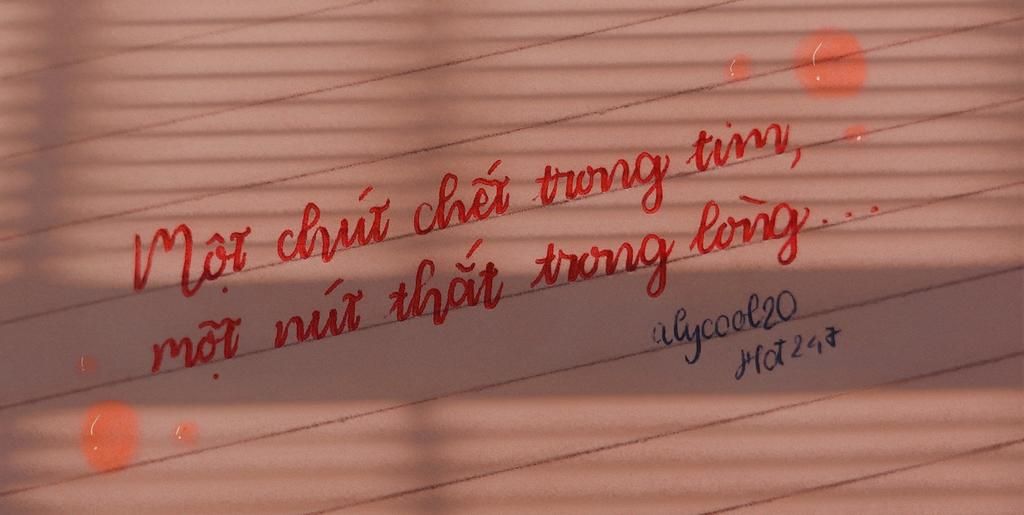 Một chút chết trong tim,
một nút thắt trong lòng...
alycool20
Hot247